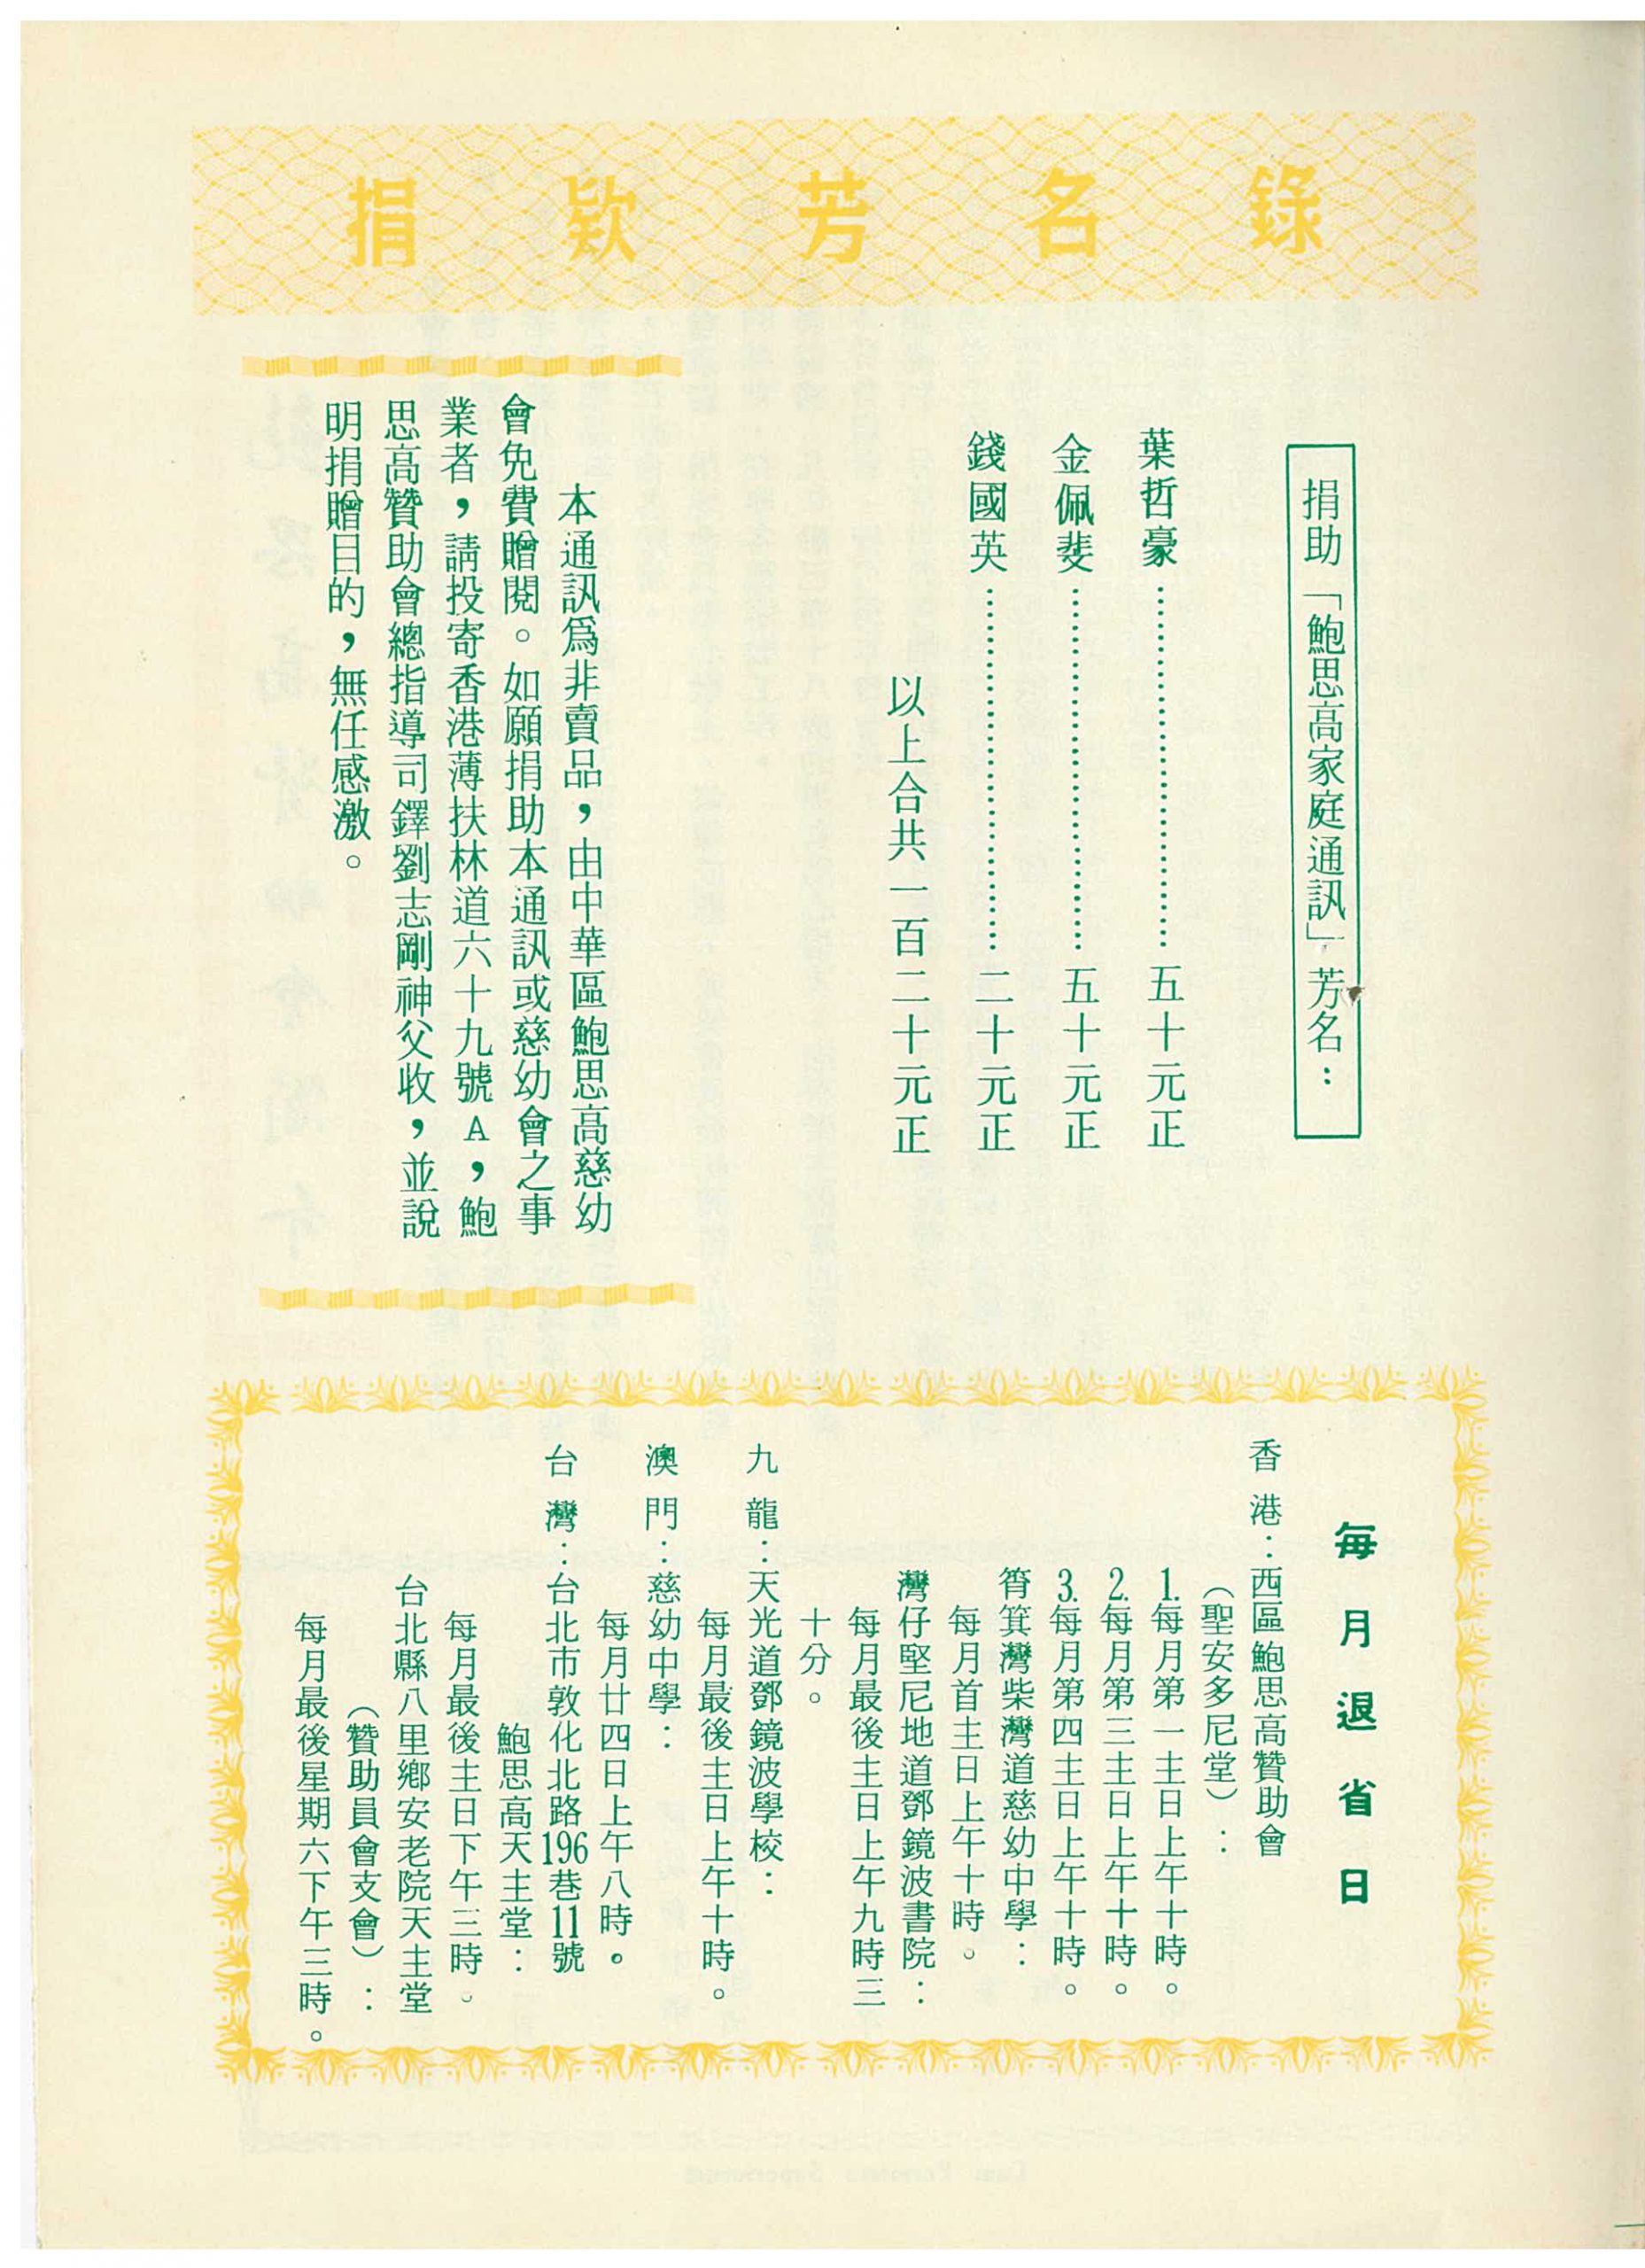 捐款芳名錄
捐助「鮑思高家庭通訊」芳名：
葉哲豪……………………五十元正
金佩斐……………………五十元正
錢國英……………………二十元正
以上合共一百二十元正
本通訊爲非賣品，由中華區鮑思高慈幼
會免費贈閱。如願捐助本通訊或慈幼會之事
業者，請投寄香港薄扶林道六十九號A，鮑
思高贊助會總指導司鐸劉志剛神父收，並說
明捐贈目的，無任感激。
每月退省日
香港：西區鮑思高贊助會
（聖安多尼堂）：
1.每月第一主日上午十時。
2.每月第三主日上午十時。
3.每月第四主日上午十時。
筲箕灣柴灣道慈幼中學：
每月首主日上午十時。
灣仔堅尼地道鄧鏡波書院：
每月最後主日上午九時三
十分。
九龍：天光道鄧鏡波學校：
每月最後主日上午十時。
澳門：慈幼中學：
每月廿四日上午八時。
台灣：台北市敦化北路196巷11號
鮑思高天主堂：
每月最後主日下午三時。
台北縣八里鄉安老院天主堂
（贊助員會支會）：
每月最後星期六下午三時。